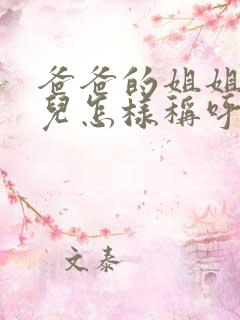 爸爸的姐姐
兒怎樣稱呼
文泰